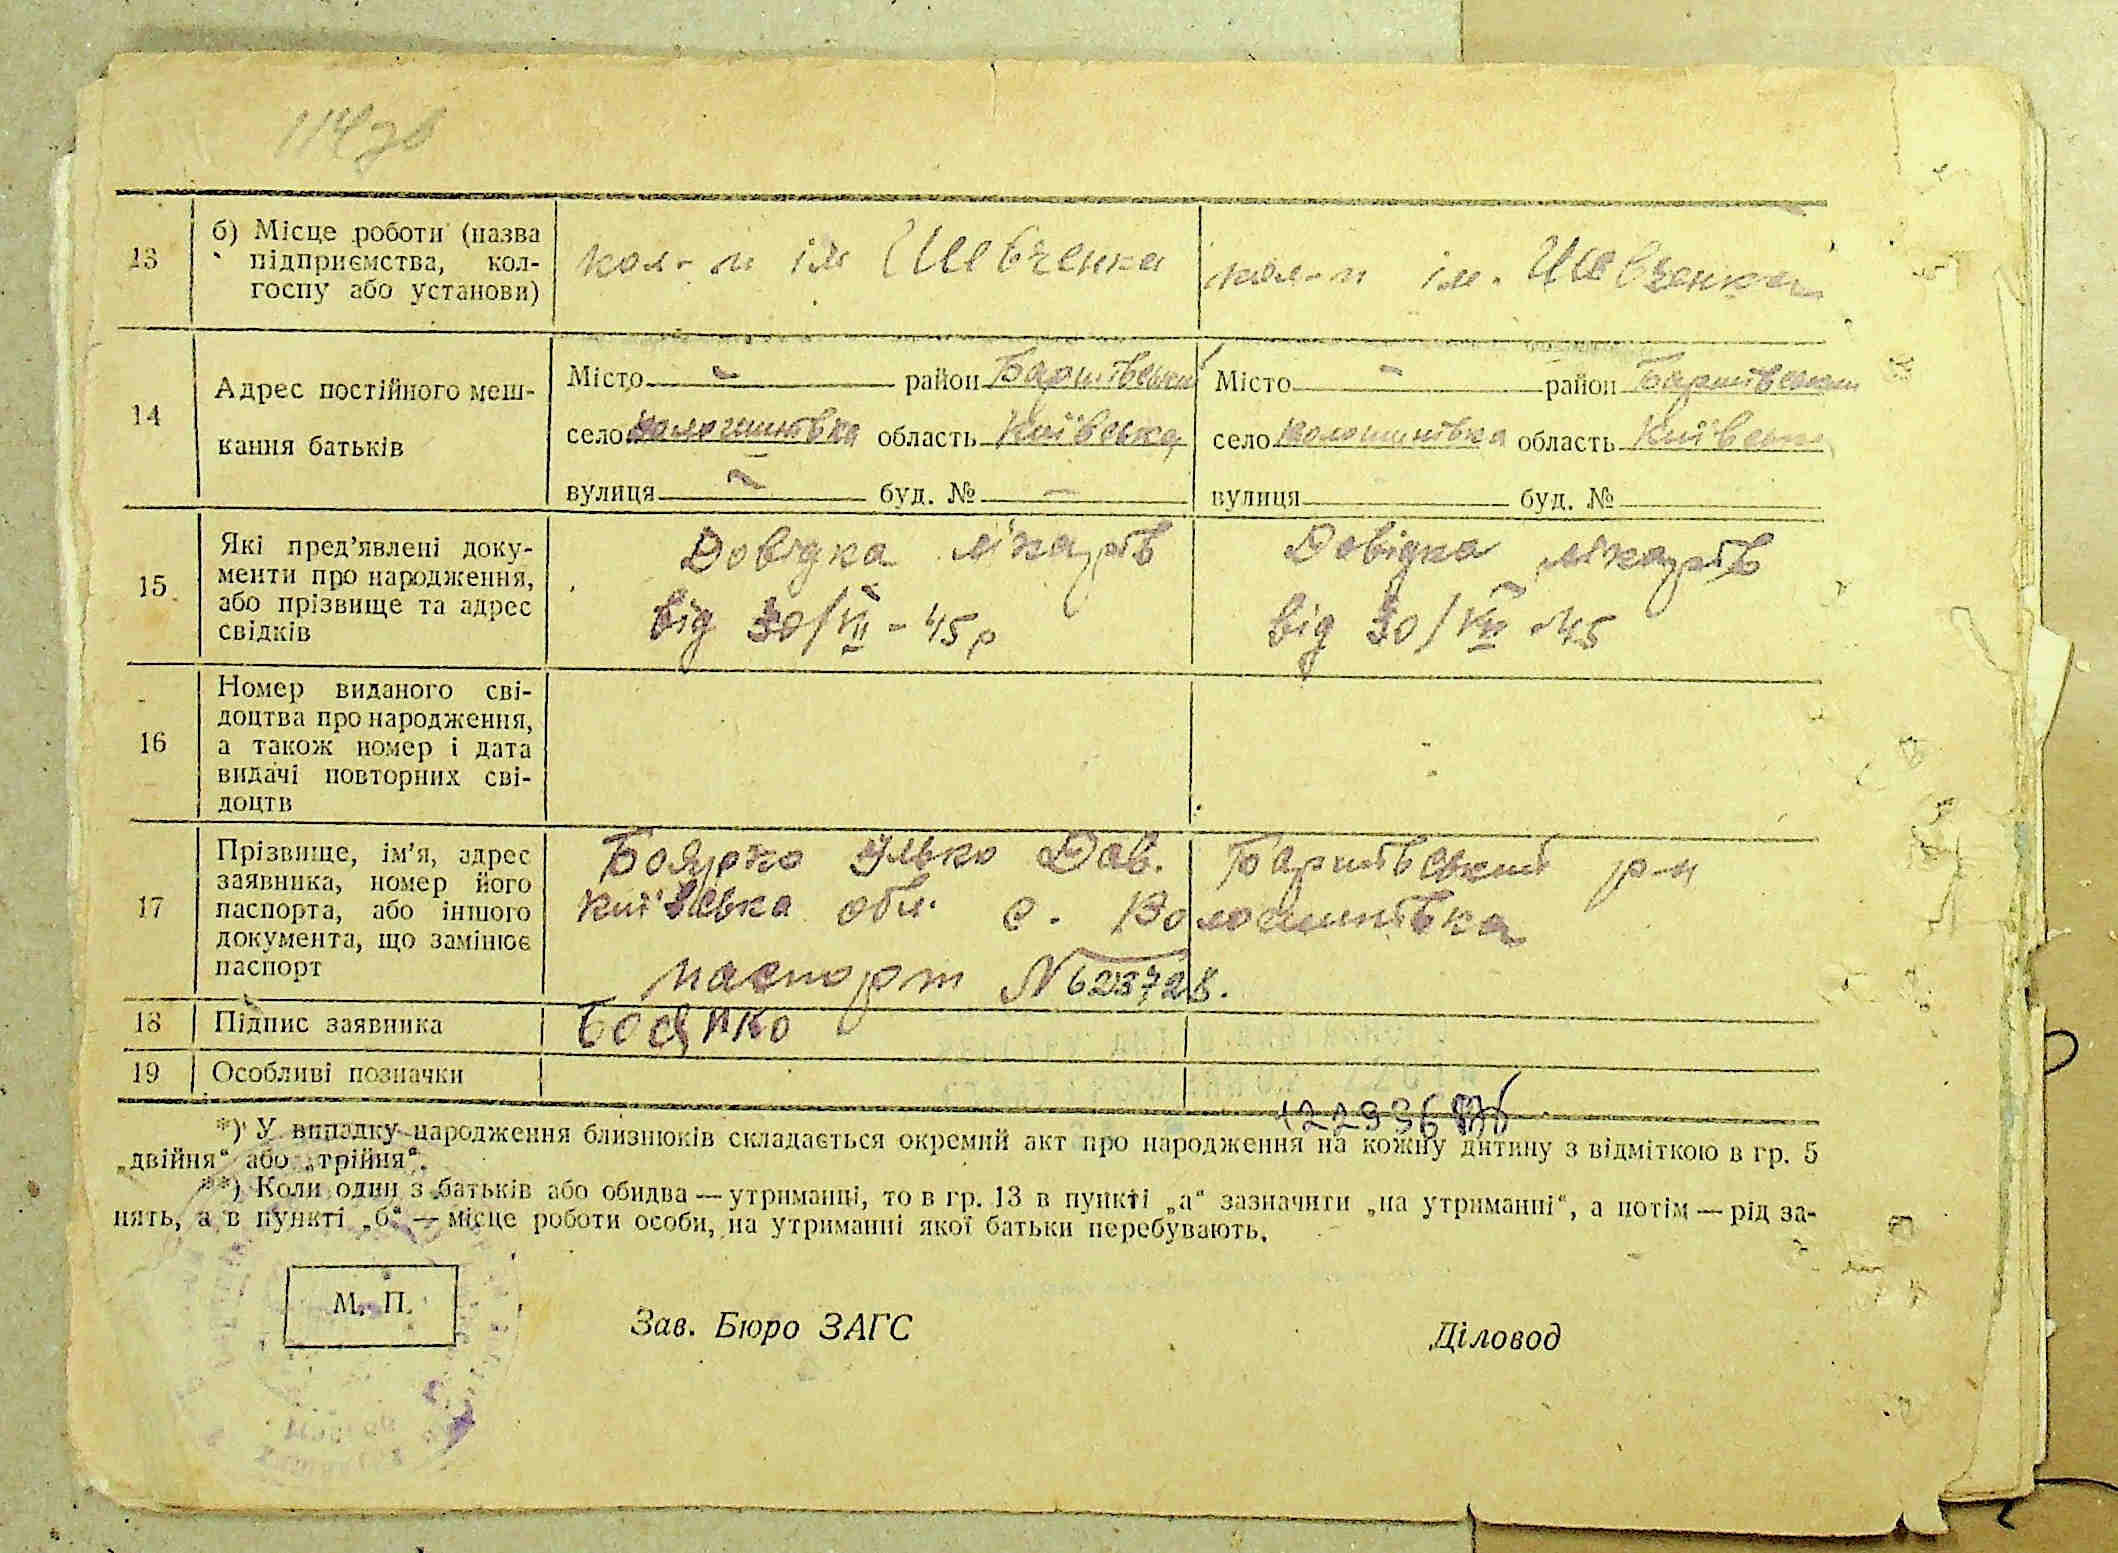 13
б) Місце роботи (назва
підприємства, кол-
госпу або установи)
кол-п ім Шевченка
кол-п ім. Шевченка
14
Адрес постійного меш-
кання батьків
Місто — район Баришівський
село Волошинівка область Київська
вулиця — буд. № —
Місто — район Баришівський
село Волошинівка область Київськ
вулиця буд. №
15
Які пред’явлені доку-
менти про народження,
або прізвище та адрес
свідків
Довідка лікарів
від 30/VII - 45 р
Довідка лікарів
від 30/VII - 45
16
Номер виданого сві-
доцтва про народження,
а також номер і дата
видачі повторних сві-
доцтв
17
Прізвище, ім’я, адрес
заявника, номер його
паспорта, або іншого
документа, що замінює
паспорт
Боярко Улько Дав. Баришівський р-н
Київська обл. с. Волошинівка
паспорт № 623728.
18
Підпис заявника
19
Особливі позначки
*) У випадку народження близнюків складається окремий акт про народження на кожну дитину з відміткою в гр. 5
„двійня“ або „трійня“.
**) Коли один з батьків або обидва — утриманці, то в гр. 13 в пункті „а“ зазначити „на утриманні“, а потім — рід за-
нять, а в пункті „б“ — місце роботи особи, на утриманні якої батьки перебувають.
М. П.
Зав. Бюро ЗАГС
Діловод